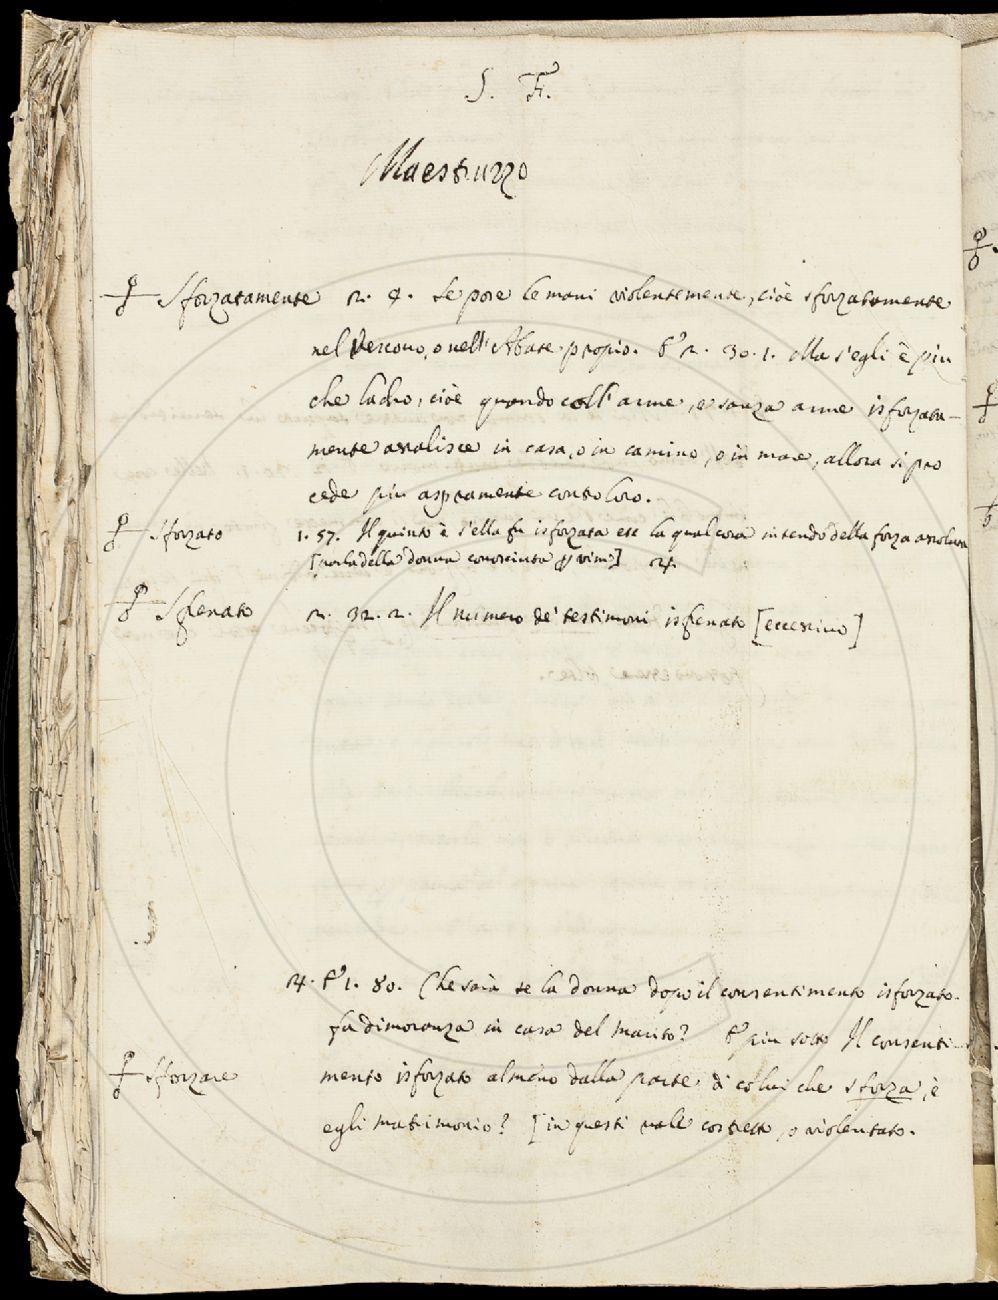 S. F.
Maestruzzo
Sforzatamente 2. 4. Se pone le mani violentemente, cioè sforzatamente
nel Vescovo, o nell'Abate proprio. E 2. 30. 1. Ma s'egli è più
che ladro, cioè quando coll'arme, o sanza arme isforzata-
mente assalisce in casa, o in camino, o in mare, allora si pro
cede più aspramente contoloro.
Sforzato 1. 57. Il quinto è s'ella fu isforzata etc la qual cosa intendo della forza assoluta
[parla della donna conosciuta per vim] 24.
Sfrenato 2. 32. 2. Il numero de' testimoni isfrenato [eccessivo]
24. E 1. 80. Che sarà se la donna dopo il consentimento isforzato
fa dimoranza in casa del marito? E più sotto Il consenti-
Sforzare mento isforzato almeno dalla parte di colui che sforza, è
egli matrimonio? [in questi vale costretto, o violentato.